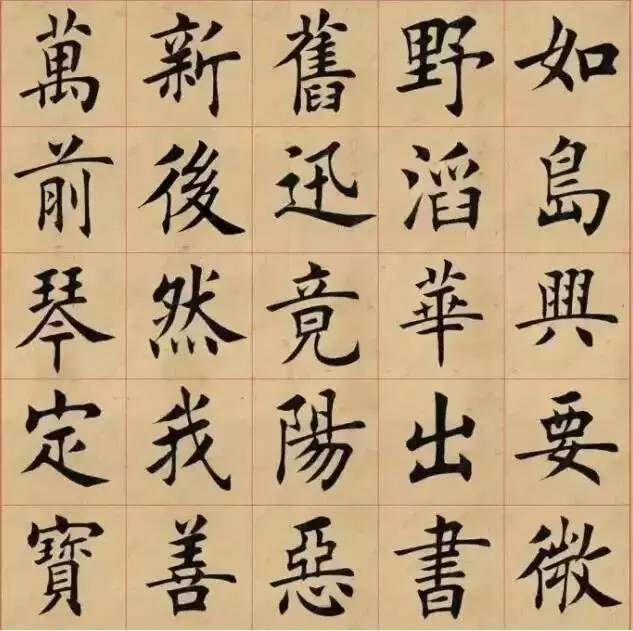 萬新舊野如
前後迅滔島
琴然竟華興
定我陽出要
寶善惡書微